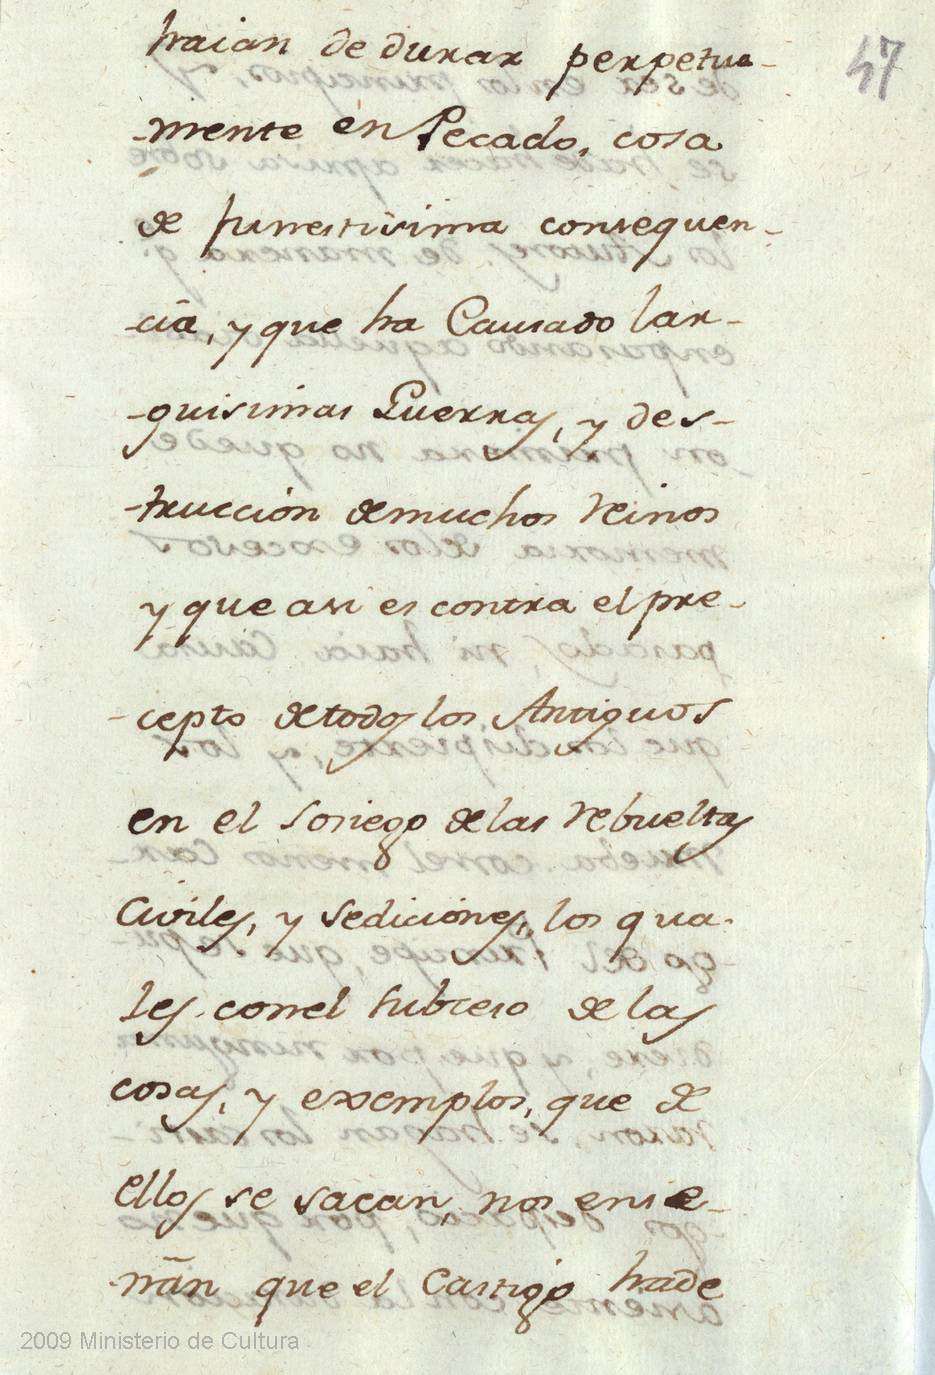 47
haian de durar perpetua-
-mente en Pecado, cosa
de funestisima consequen-
-cia, y que ha Causado lar-
-guisimas Guerras, y des-
-truccion de muchos Reinos
y que asi es contra el pre-
-cepto de todos los Antiguos
en el sosiego de las Rebueltas
Civiles, y sediciones, los qua-
les con el subceso de las
cosas, y exemplos, que de
ellos se sacan, nos ense-
-ñan que el Castigo hade
2009 Ministerio de Cultura